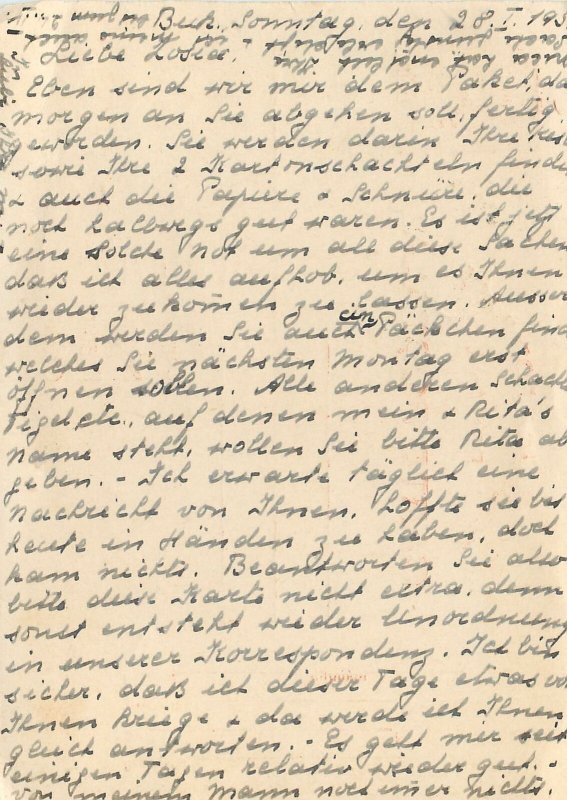 Buk. Sonntag, den 28. I. 193
Liebe Losia,
Eben sind wir mir dem Paket, da
morgen an Sie abgehen soll, fertig
geworden. Sie werden darin Ihre
sowi Ihre 2 Kartonschachteln finde
& auch die Papiere & Schnüre, die
noch halbwegs gut waren. Es ist jetzt
eine solche Not um all diese Sachen
daß ich alles aufhob, um es Ihnen
wieder zukommen zu lassen. Ausser
dem werden Sie auch ein Päckchen find
welches Sie nächsten Montag erst
öffnen sollen. Alle anderen Schacht
Tigel etc., auf denen mein & Rita's
Name steht, wollen Sie bitte Rita ab
geben. - Ich erwarte täglich eine
Nachricht von Ihnen, hoffte sie bis
heute in Händen zu haben, doch
kam nichts. Beantworten Sie also
bitte diese Karte nicht extra, denn
sonst entsteht wieder Unordnung
in unserer Korrespondenz. Ich bin
sicher, daß ich dieser Tage etwas vo
Ihnen kriege & da werde ich Ihnen
gleich antworten. - Es geht mir seit
einigen Tagen relativ wieder gut. -
Von meinem Mann noch immer nichts.